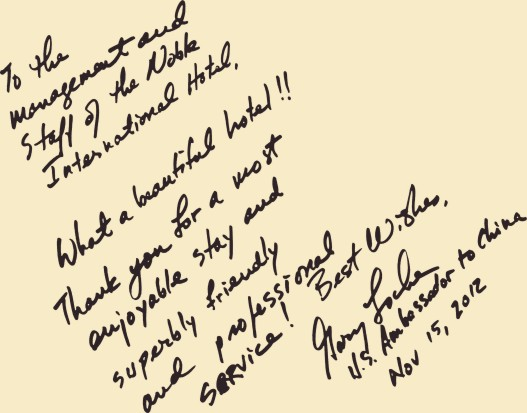 To the
management and
Staff of the Noble
International Hotel,
What a beautiful hotel!!
Thank you for a most
enjoyable stay and
superbly friendly
and professional
SERVICE!
Best Wishes,
Gary Locke
U.S. Ambassador to China
Nov 15, 2012